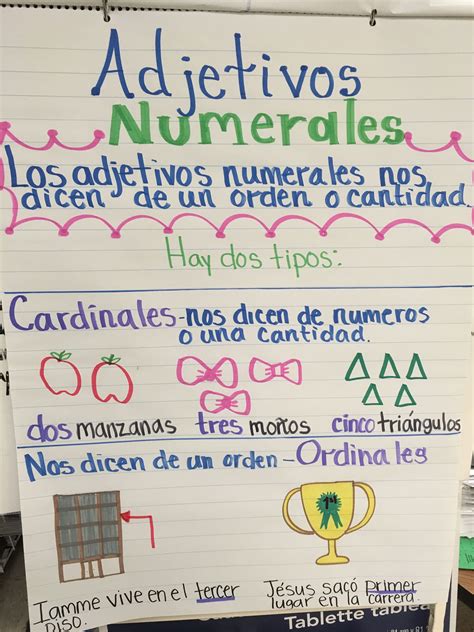 Adjetivos
Numerales
Los adjetivos numerales nos
dicen de un orden o cantidad.
Hay dos tipos:
Cardinales-nos dicen de numeros
o una cantidad.
dos manzanas tres moños cinco triángulos
Nos dicen de un orden - Ordinales
1st
Iamme vive en el tercer
piso.
Jesus sacó Primer
lugar en la carrera.
Tablette